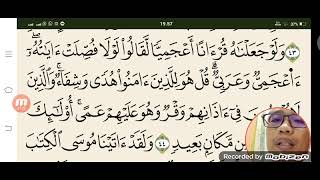 19.57
٤٣ وَلَوْ جَعَلْنَٰهُ قُرْءَانًا أَعْجَمِيًّا لَّقَالُوا۟ لَوْلَا فُصِّلَتْ ءَايَٰتُهُۥٓ ۖ
ءَا۬عْجَمِىٌّ وَعَرَبِىٌّ ۗ قُلْ هُوَ لِلَّذِينَ ءَامَنُوا۟ هُدًى وَشِفَآءٌ ۖ وَٱلَّذِينَ
فِىٓ ءَاذَانِهِمْ وَقْرٌ وَهُوَ عَلَيْهِمْ عَمًى ۚ أُو۟لَٰٓئِكَ
مِن مَّكَانٍۭ بَعِيدٍ ٤٤ وَلَقَدْ ءَاتَيْنَا مُوسَى ٱلْكِتَٰبَ
Recorded by